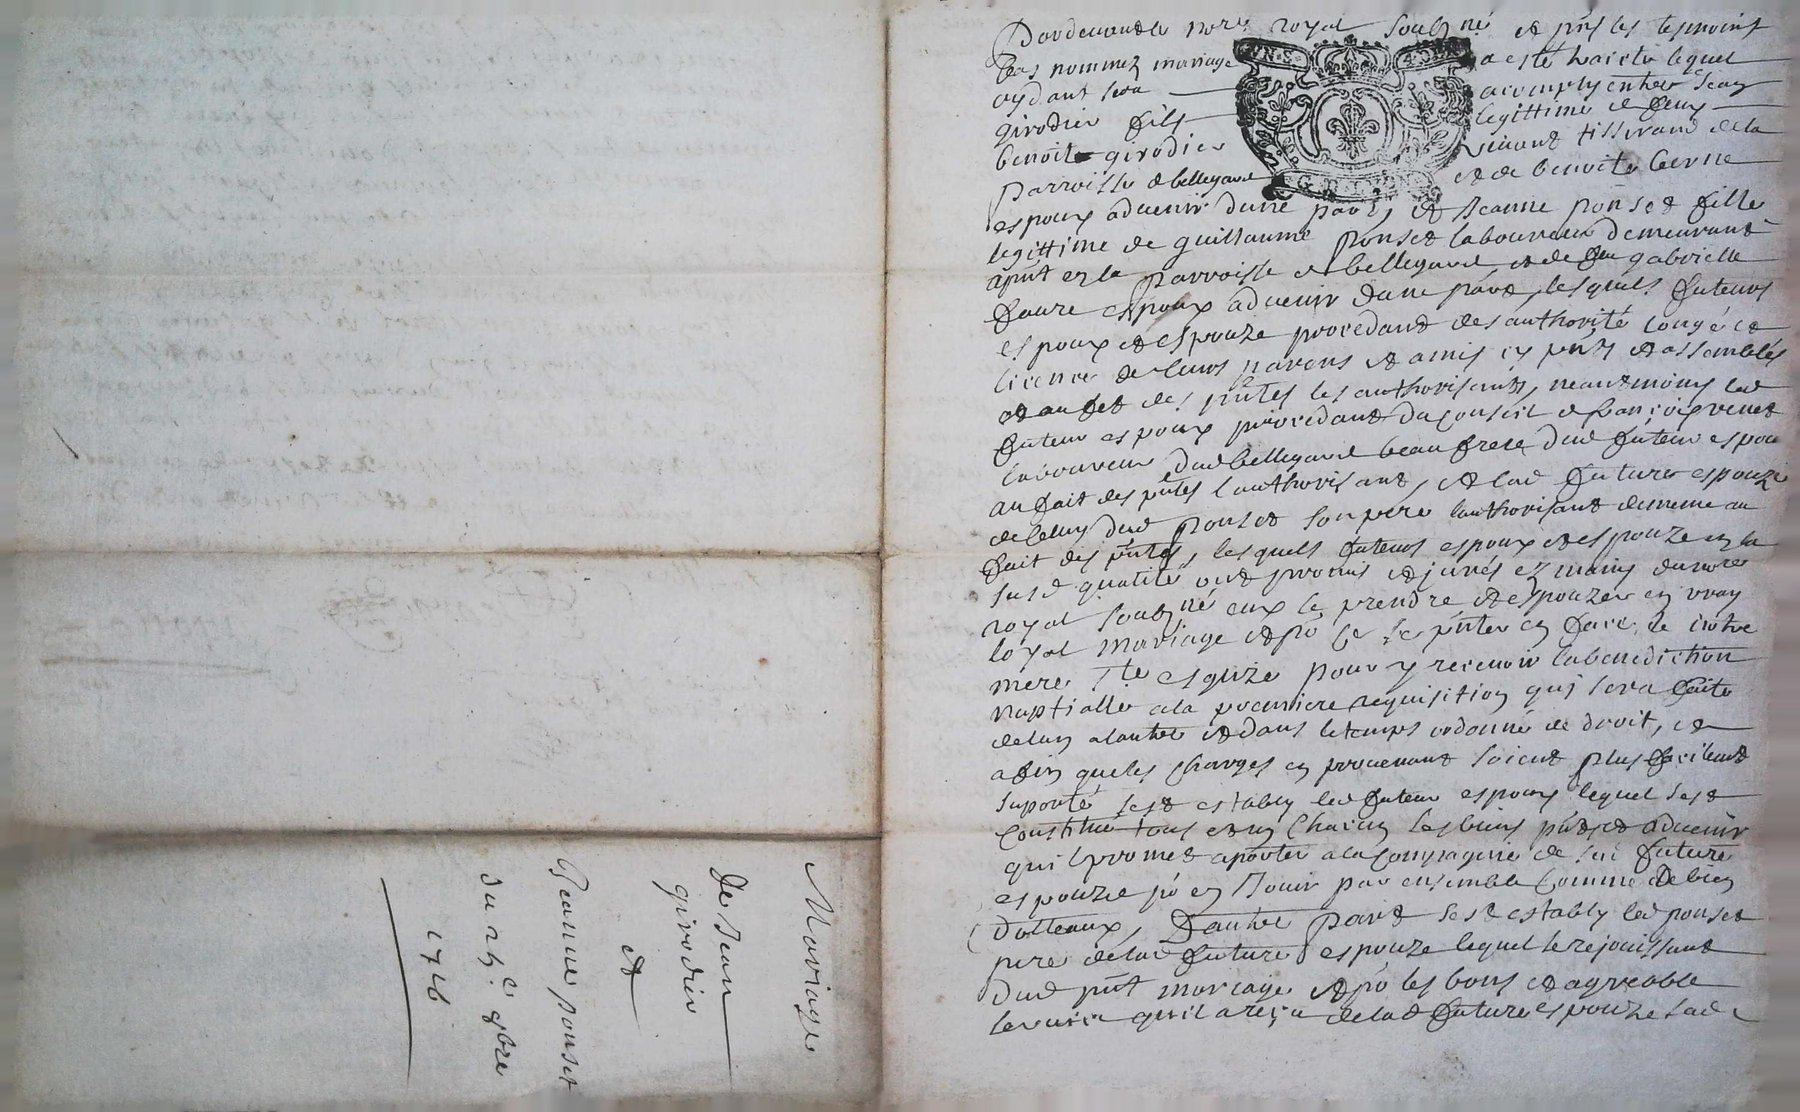 Mariage
de Jean
girodier
et
Jeanne ponset
du 25e 9bre
1746
Pardevant le no.re royal soubz.né et pnts les tesmoins
bas nommez mariage a esté traicté lequel
aydant sera accomply entre Jean
girodier fils legittime de feu
benoit girodier vivant tisserand de la
parroisse de bellegarde et de benoite berne
espoux advenir d'une part, et Jeanne ponset fille
legittime de guillaume ponset laboureur demeurant
apnt en la parroisse de bellegarde et de feu gabrielle
faure espoux advenir d'une part, lesquels futeurs
espoux et espouze procedant des authorité congé et
licence de leurs parens et amis cy pnts et assemblés
et au fet des pntes les authorisants, neantmoins led
futeur espoux procedant du conseil de françois venet
laboureur dud bellegarde beau frere dud futeur espoux
au fait des pntes lauthorisant, et lad future espouze
de celluy dud ponset son pere lauthorisant de meme au
fait des pntes, lesquels futeurs espoux et espouze en la
susd qualité ont promis et jurés ez mains du no.re
royal soubz.né eux se prendre et espouzer en vray
loyal mariage et po ce se pnter en face de notre
mere s.te esglize pour y recevoir la benediction
nuptialle a la premiere requisition qui sera faite
de lun a lautre et dans le temps ordonné de droit, et
afin que les charges en provenant soient plus facilemt
suporté sest estably led futeur espoux lequel sest
constitué tous et un chacun ses biens pnts et advenir
quil promet aporter a la compagnie de sad future
espouze po en jouir par ensemble comme de bien
dotteaux, dautre part sest estably led ponset
pere de lad future espouze lequel se rejouissant
dud pnt mariage et po les bons et agreable
services quil a reçu de lad future espouze sad